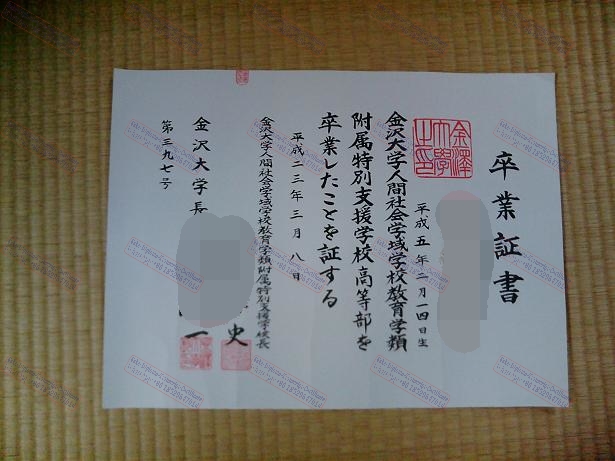 卒業証書
金澤大學之印
平成五年二月一四日生
金沢大学人間社会学域学校教育学類
附属特別支援学校高等部を
卒業したことを証する
平成二三年三月八日
金沢大学人間社会学域学校教育学類附属特別支援学校長
史
金沢大学長
一
第三九七号